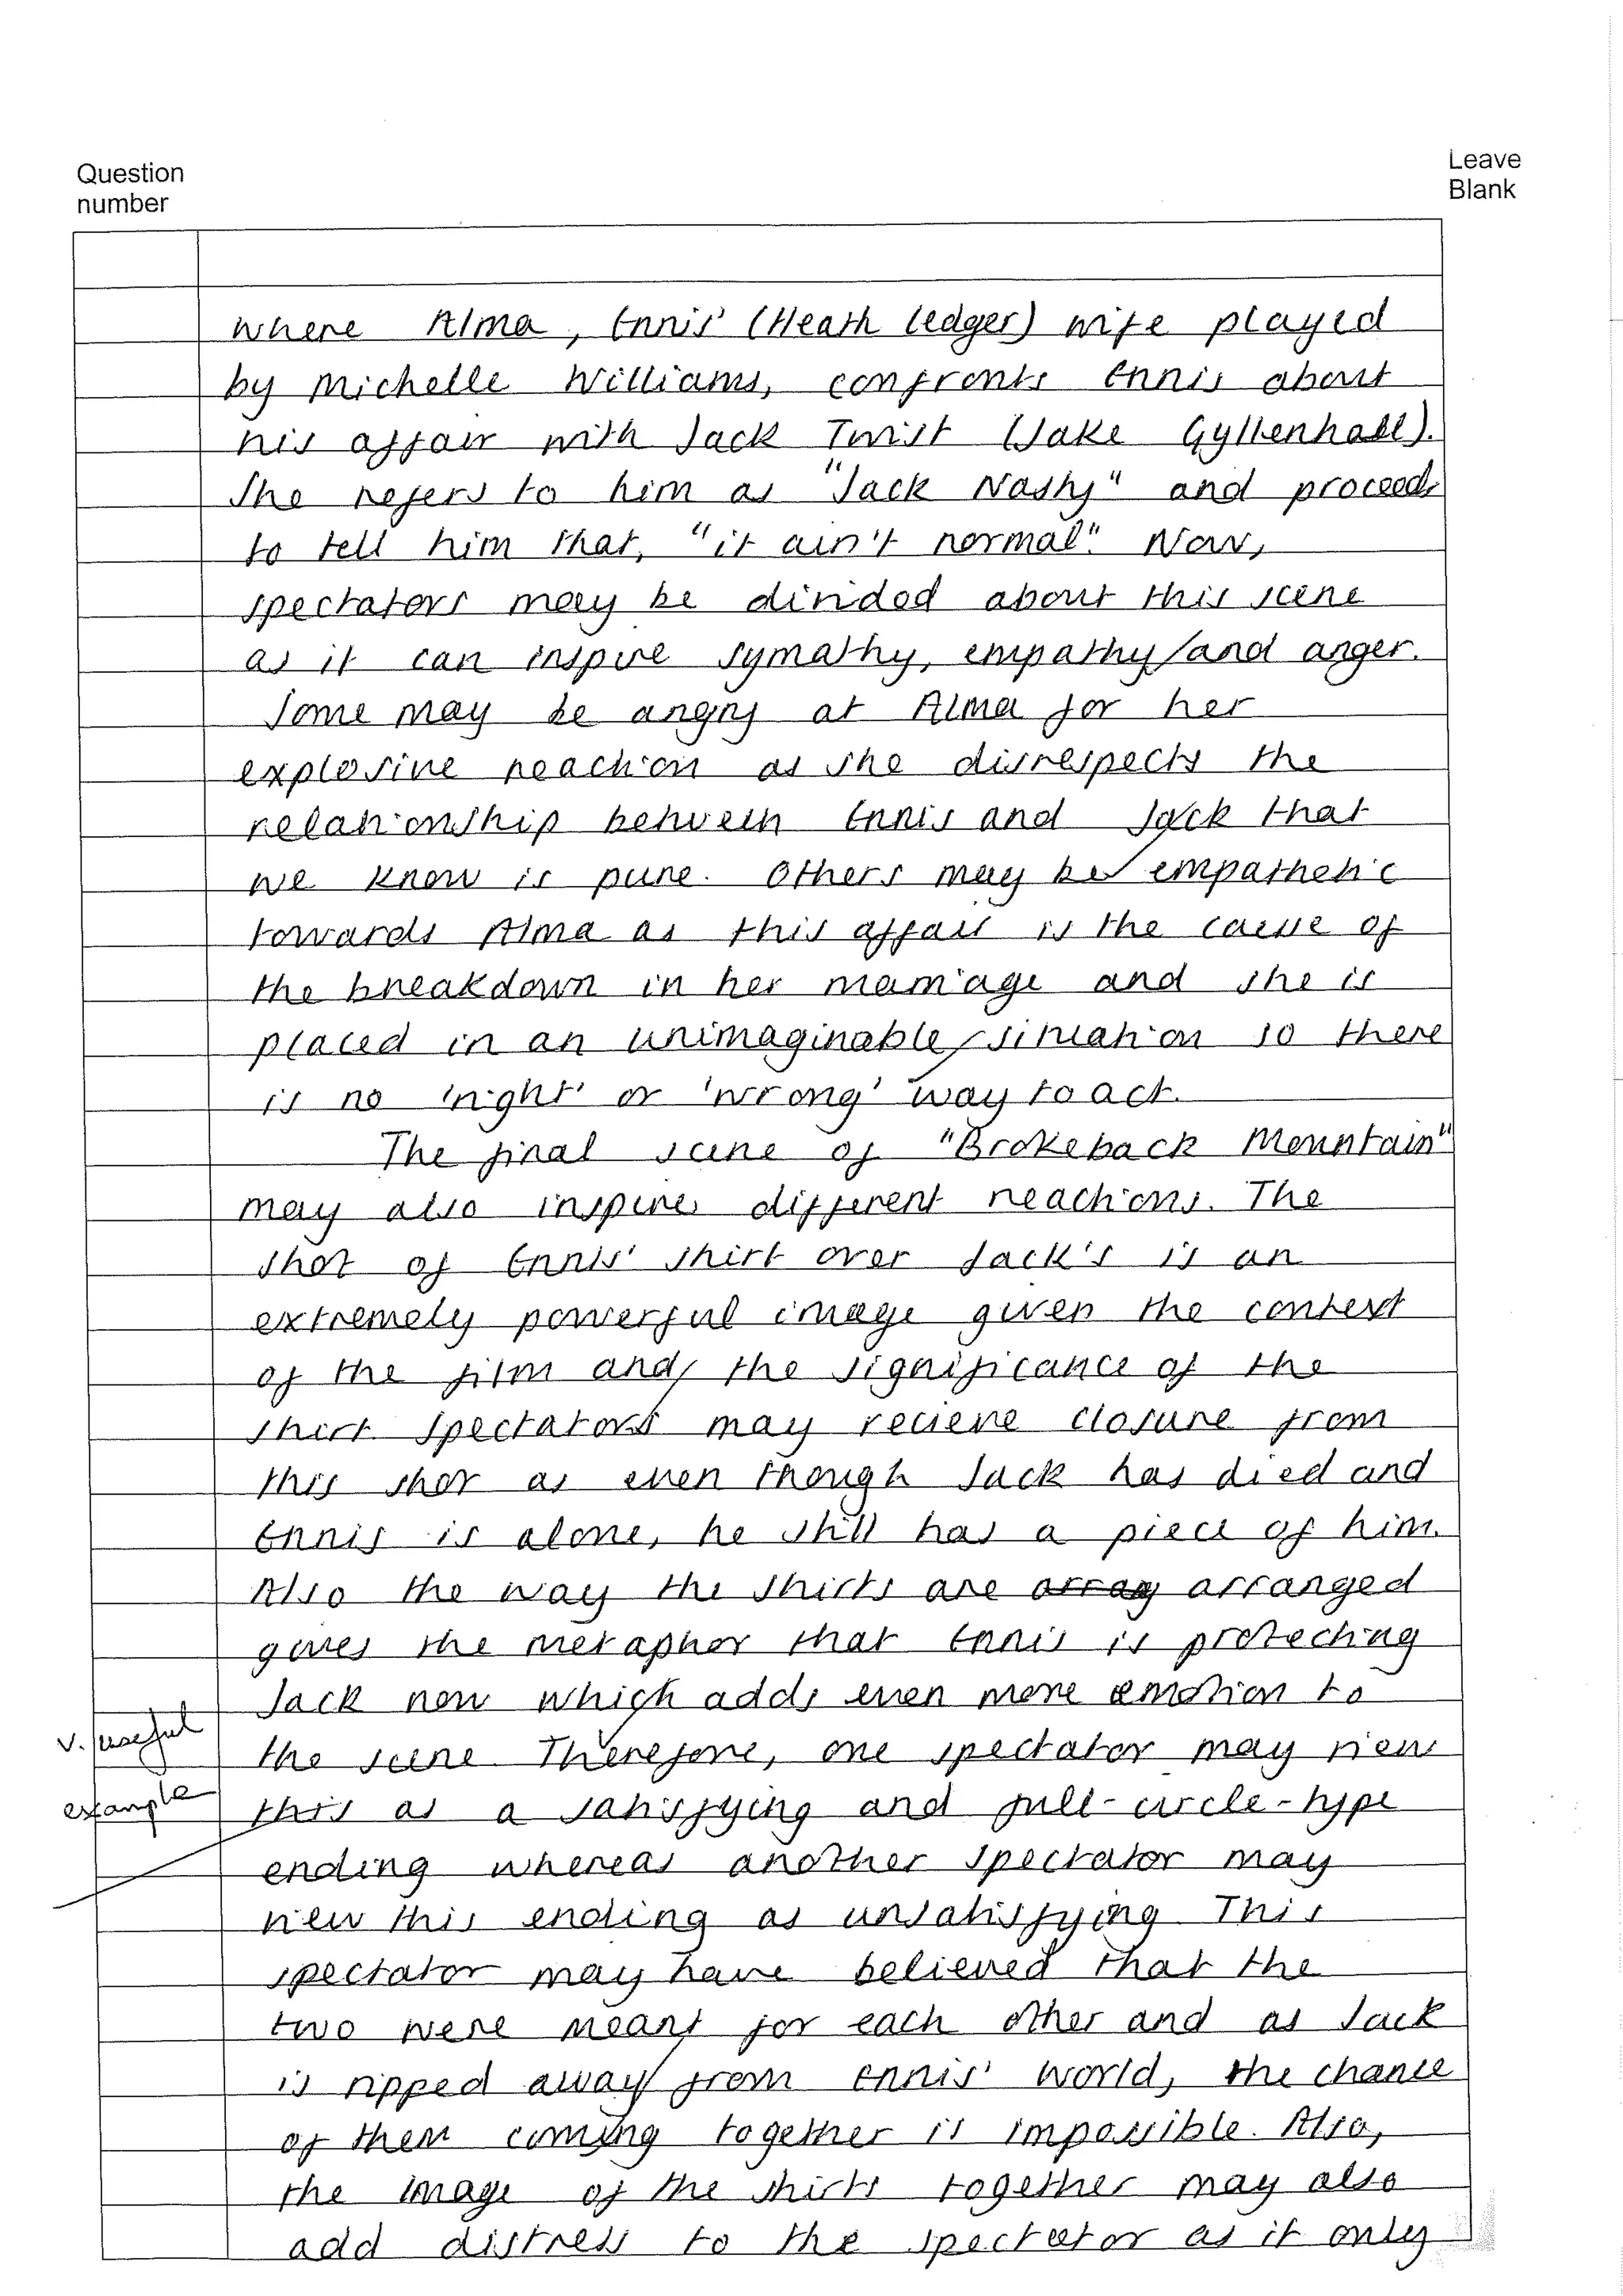 Question
number
Leave
Blank
where Alma, Ennis' (Heath Ledger) wife played
by Michelle Williams, confronts Ennis about
his affair with Jack Twist (Jake Gyllenhaal).
She refers to him as "Jack Nasty" and proceeds
to tell him that, "it ain't normal". Now,
spectators may be divided about this scene
as it can inspire symathy, empathy and anger.
Some may be angry at Alma for her
explosive reaction as she disrespects the
relationship between Ennis and Jack that
we know is pure. Others may be empathetic
towards Alma as this affair is the cause of
the breakdown in her marriage and she is
placed in an unimaginable situation so there
is no 'right' or 'wrong' way to act.
The final scene of "Brokeback Mountain"
may also inspire different reactions. The
shot of Ennis' shirt over Jack's is an
extremely powerful image given the context
of the film and the significance of the
shirt. Spectators may recieve closure from
this shot as even though Jack has died and
Ennis is alone, he still has a piece of him.
Also the way the shirts are array arranged
gives the metaphor that Ennis is protecting
Jack now which adds even more emotion to
v. useful
the scene. Therefore, one spectator may view
example
this as a satisfying and full-circle-type
ending whereas another spectator may
view this ending as unsatisfying. This
spectator may have believed that the
two were meant for each other and as Jack
is ripped away from Ennis' world, the chance
of them coming together is impossible. Also,
the image of the shirts together may also
add distress to the spectator as it only